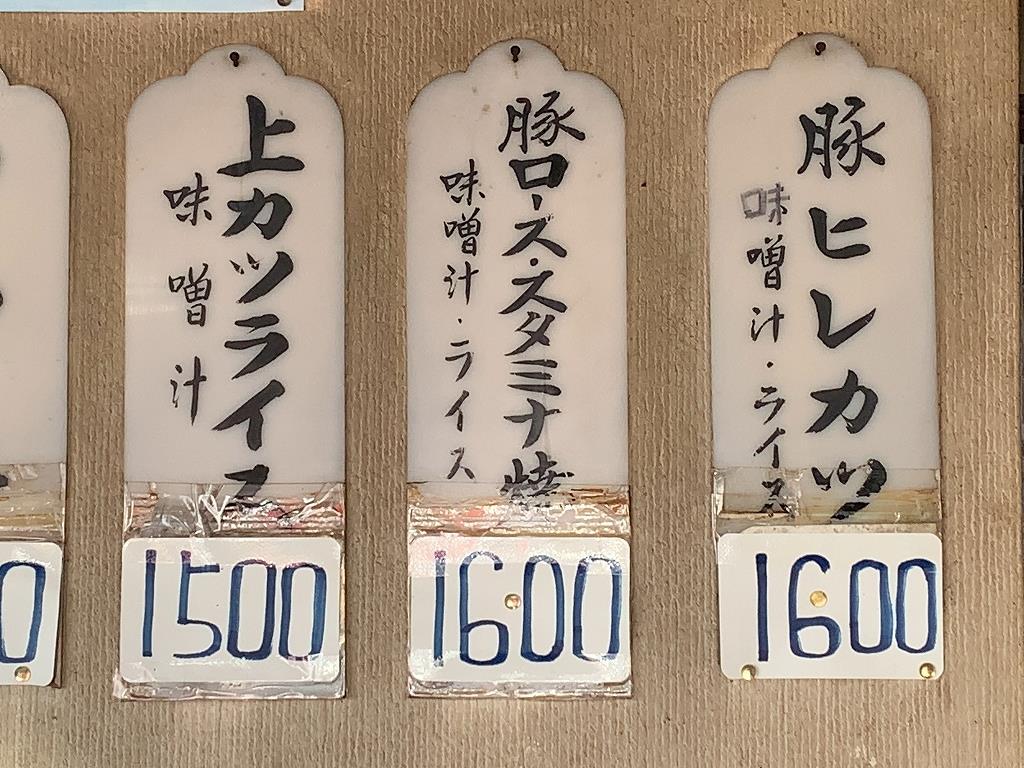 豚ヒレカツ
味噌汁・ライス
1600
豚ロース・スタミナ焼
味噌汁・ライス
1600
上カツライス
味噌汁
1500
0